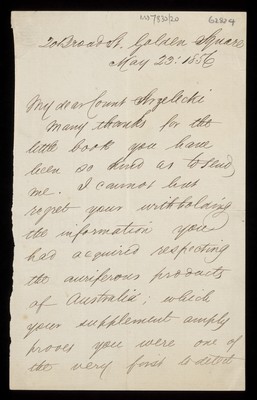 MS7830/20
20 Broad St. Golden Square
May 23: 1856
My dear Count Strzelecki
Many thanks for the
little book you have
been so kind as to send
me. I cannot but
regret your witholding
the information you
had acquired respecting
the auriferous products
of Australia; which
your supplement amply
proves you were one of
the very first to detect